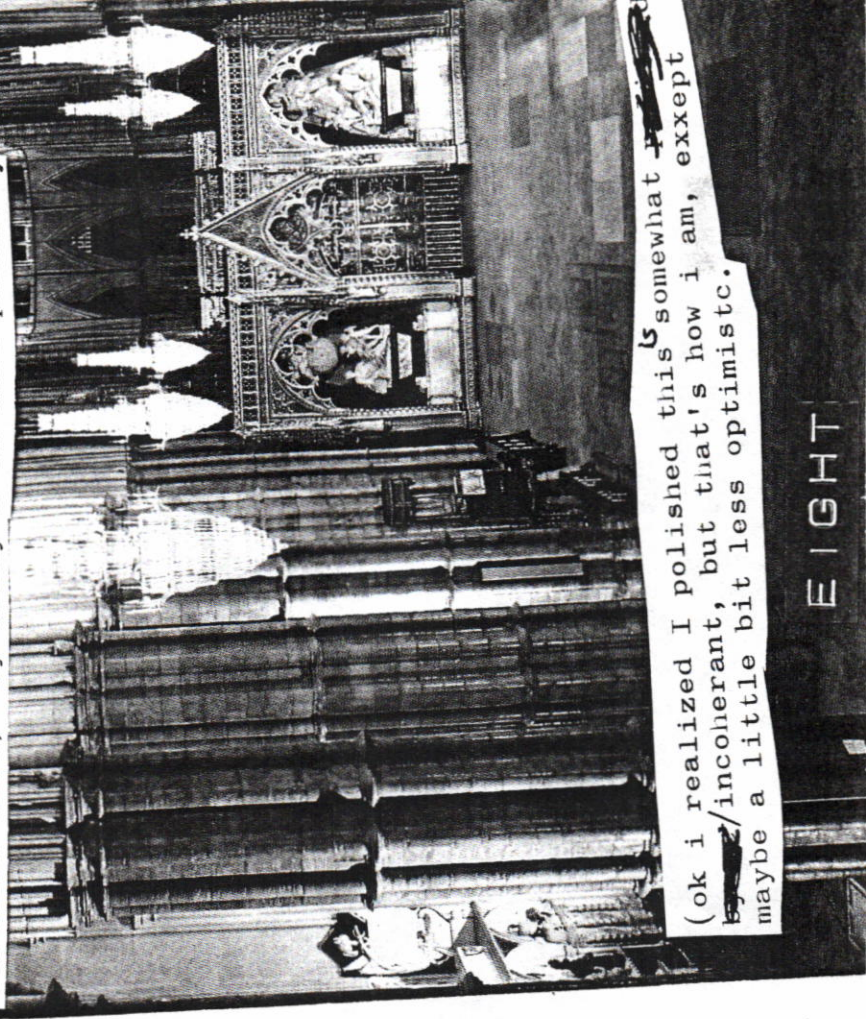 (ok i realized I polished this is somewhat
/incoherant, but that's how i am, exxept
maybe a little bit less optimistc.
EIGHT